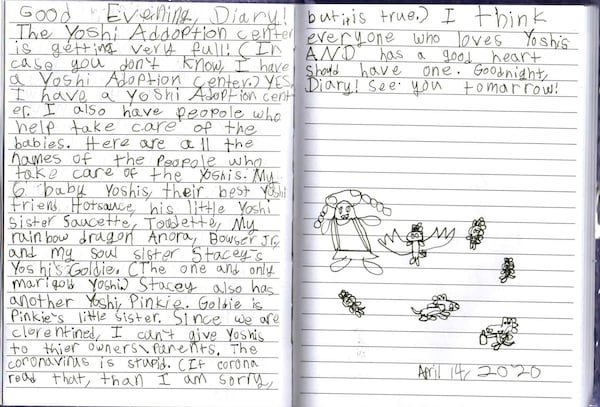 Good Evening, Diary!
The Yoshi Addoption center
is getting very full! (In
case you don't know, I have
a Yoshi Adoption Center.) YES,
I have a Yoshi Adoption cent
er. I also have peopole who
help take care of the
babies. Here are all the
names of the peopole who
take care of the Yoshis. My
6 baby Yoshis, their best Yoshi
friend Hotsauce, his little Yoshi
sister Saucette, Toadette, My
rainbow dragon Anora, Bowser Jr,
and my soul sister Stacey's
Yoshi's Goldie. (The one and only
marigold Yoshi.) Stacey also has
another Yoshi, Pinkie. Goldie is
Pinkie's little sister. Since we are
clorentined, I can't give Yoshis
to thier owners\parents. The
coronavirus is stupid. (If corona
read that, than I am sorry,
but it is true.) I think
everyone who loves Yoshis
AND has a good heart
should have one. Goodnight,
Diary! See you tomarrow!
April 14, 2020